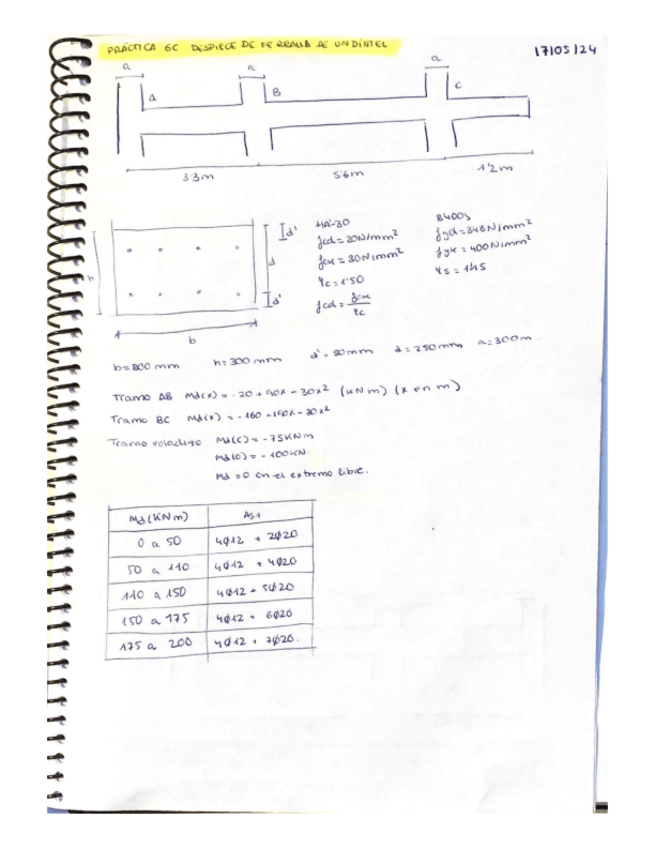 PRÁCTICA 6C DESPIECE DE FERRALLA DE UN DINTEL
17/05/24
a a a
A B C
3'3m 5'6m 1'2m
HA-30
fcd = 20N/mm²
fck = 30N/mm²
γc = 1'50
fcd = fck/γc
B400S
fyd = 348N/mm²
fyk = 400N/mm²
γs = 1'15
d'
d
h
d'
b
b = 800 mm h = 300 mm d' = 50mm d = 250mm a = 300m.
Tramo AB Md(x) = -20 + 90x - 30x² (kNm) (x en m)
Tramo BC Md(x) = -160 + 190x - 30x²
Tramo voladizo Md(c) = -75KNm
= -100KN.
Md = 0 en el extremo libre.
Md (KNm) As1
0 a 50 4φ12 + 2φ20
50 a 110 4φ12 + 4φ20
110 a 150 4φ12 + 5φ20
150 a 175 4φ12 + 6φ20
175 a 200 4φ12 + 7φ20.